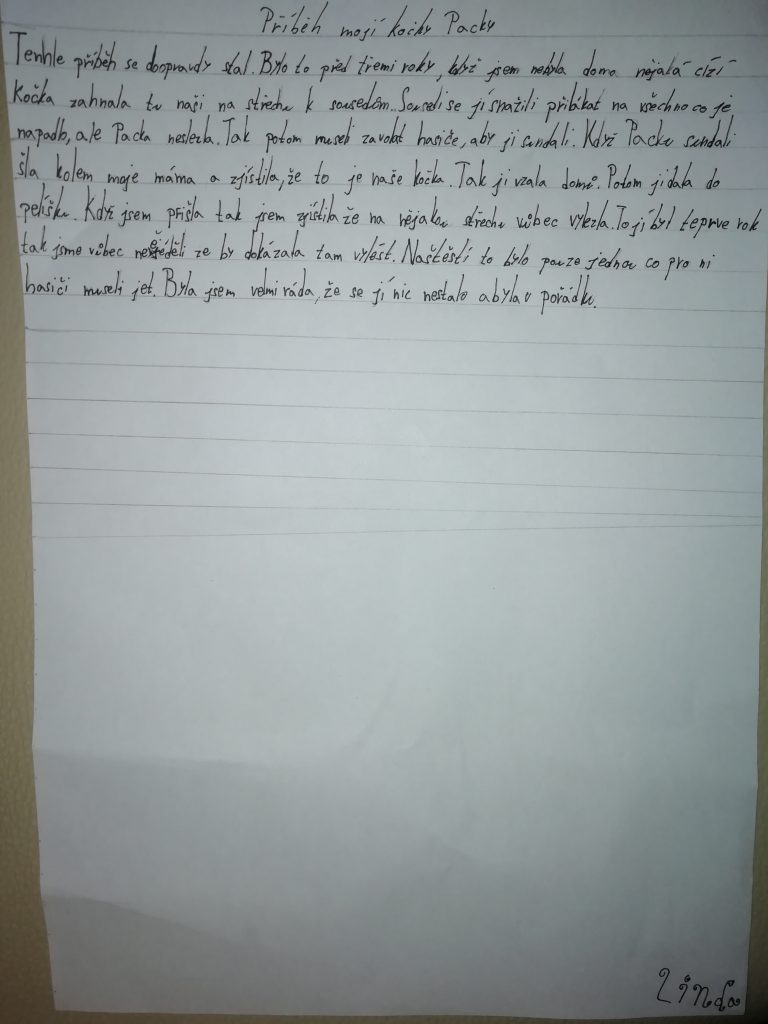 Příběh mojí kočky Packy
Tenhle příběh se doopravdy stal. Bylo to před třemi roky, když jsem nebyla doma nějaká cizí
kočka zahnala tu naši na střechu k sousedům. Sousedi se jí snažili přilákat na všechno co je
napadlo, ale Packa neslezla. Tak potom museli zavolat hasiče, aby ji sundali. Když Packu sundali
šla kolem moje máma a zjistila, že to je naše kočka. Tak ji vzala domů. Potom ji dala do
pelíšku. Když jsem přišla tak jsem zjistila že na nějakou střechu vůbec vylezla. To jí byl teprve rok
tak jsme vůbec nevěděli že by dokázala tam vylést. Naštěstí to bylo pouze jednou co pro ni
hasiči museli jet. Byla jsem velmi ráda, že se jí nic nestalo a byla v pořádku.
Linda